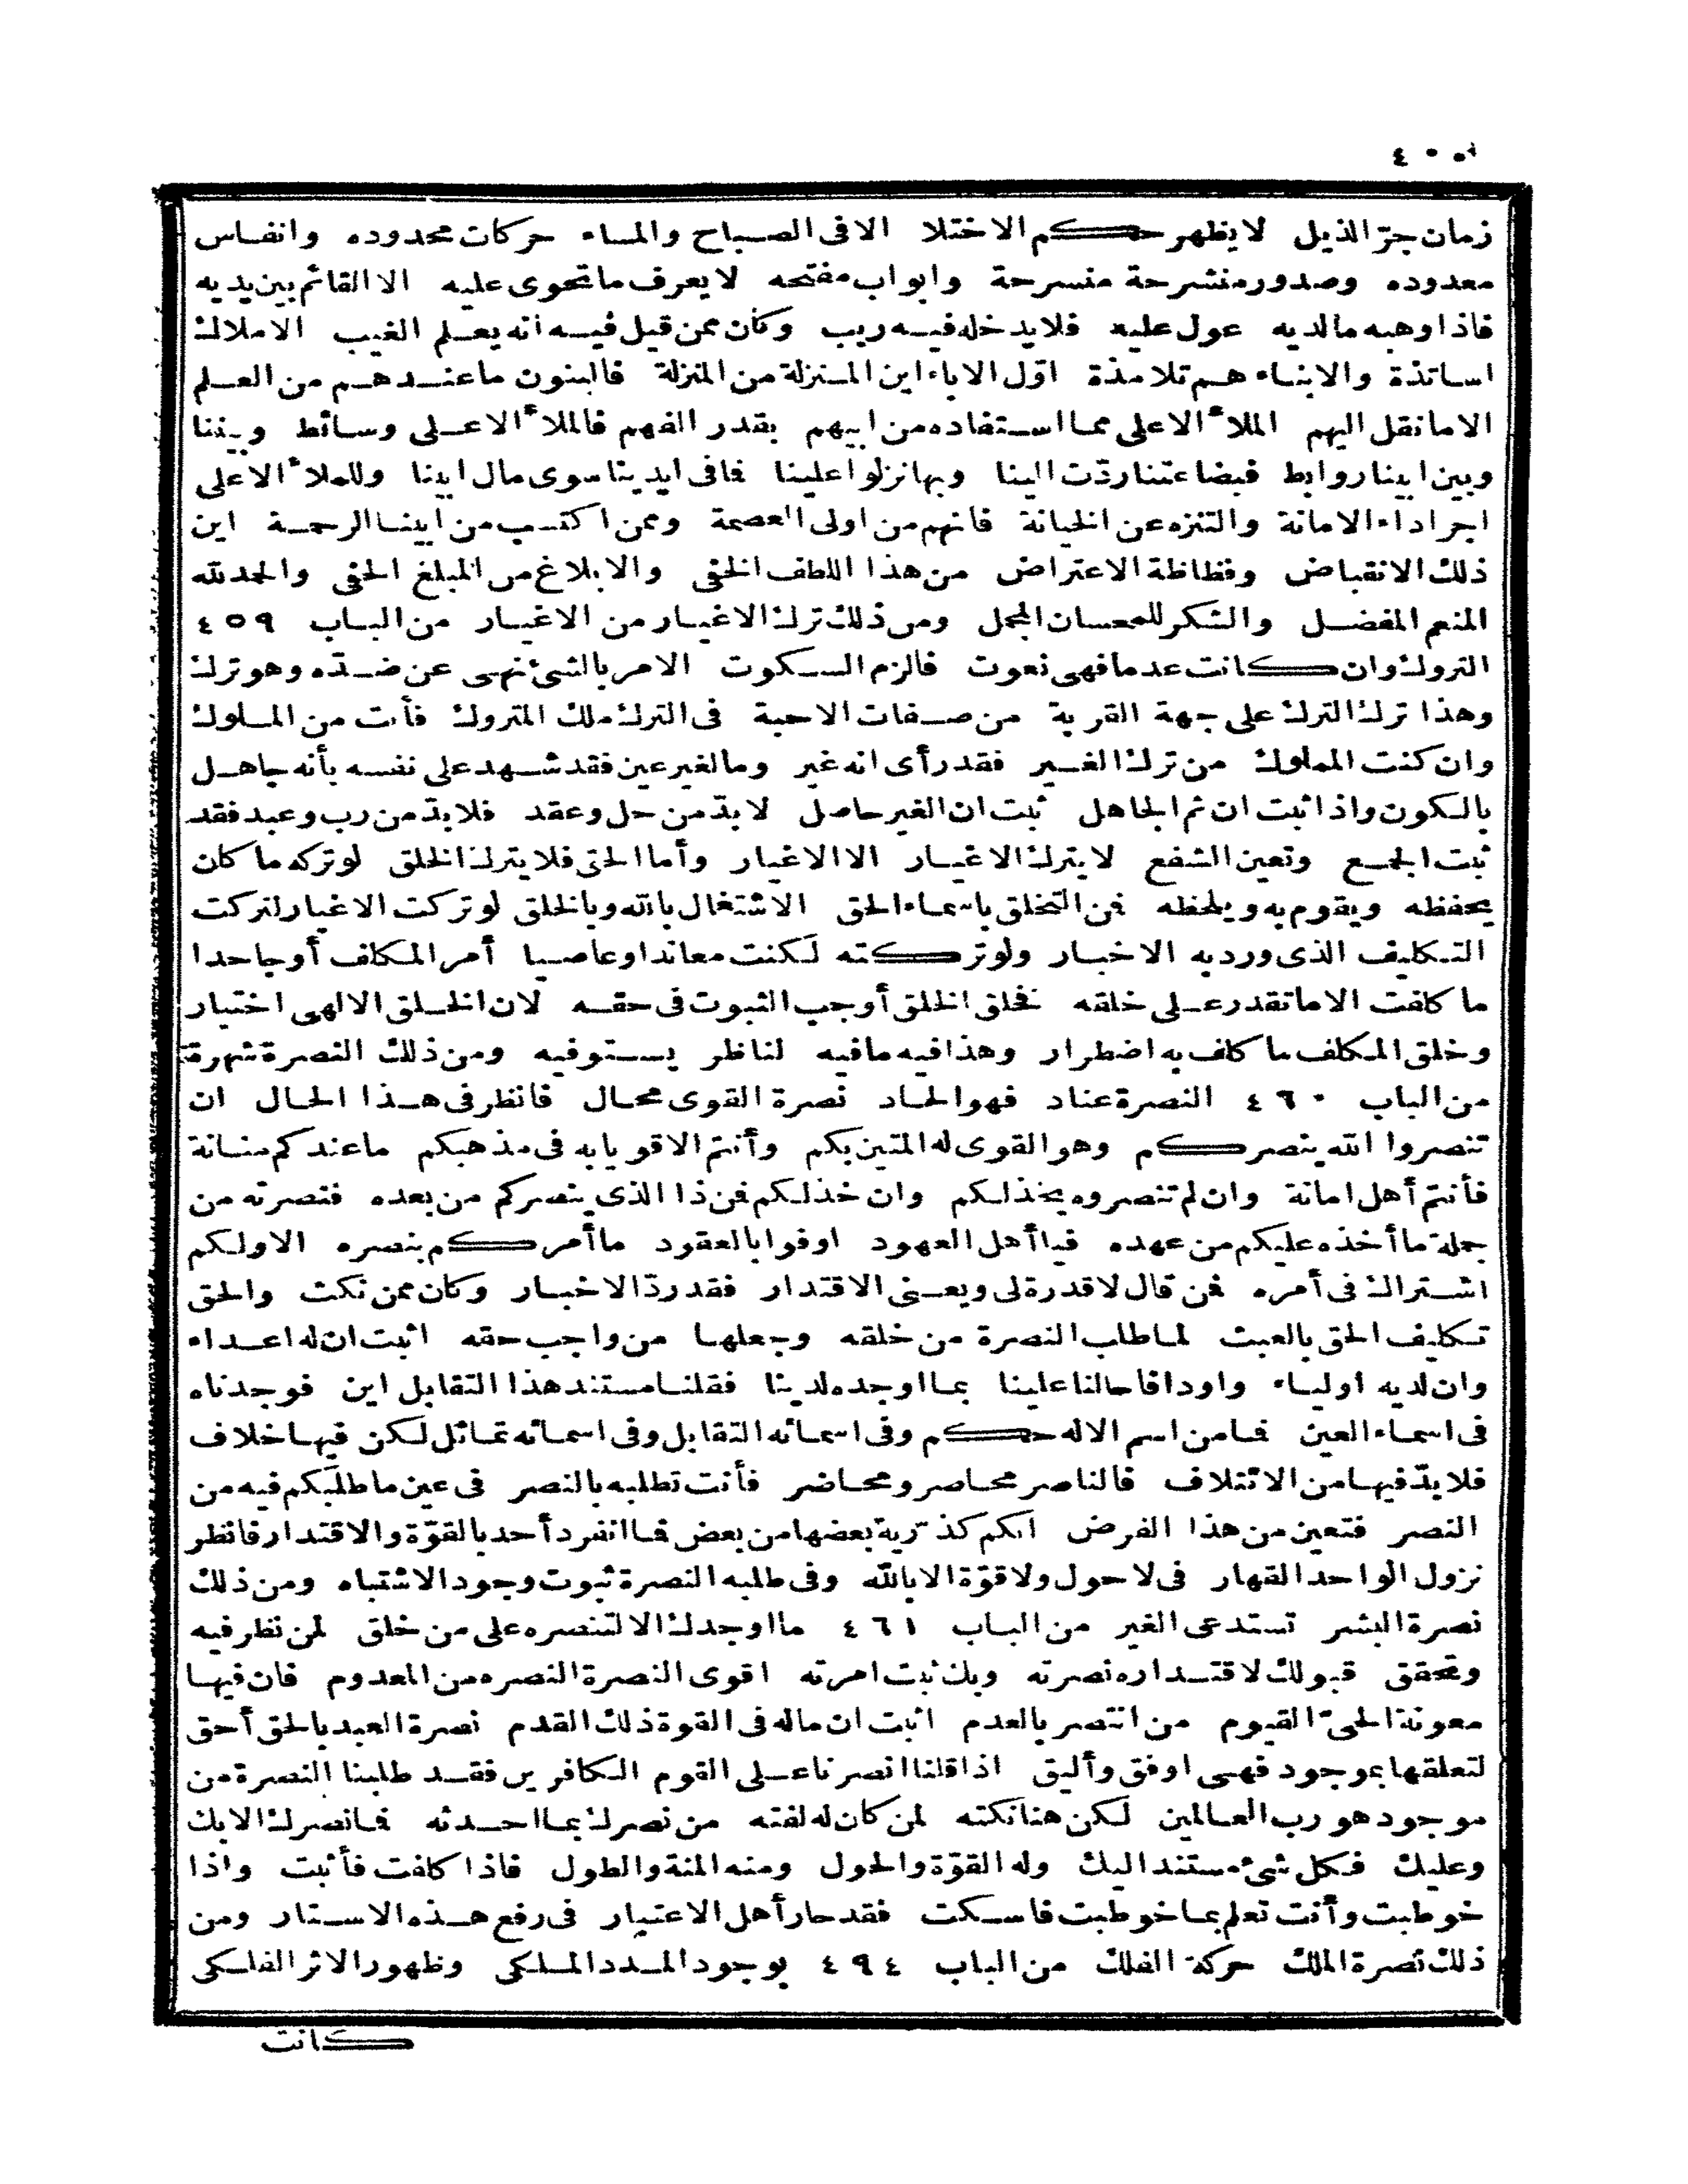 ٤٠٠
زمان جرّ الذيل لا يظهر حكم الاختلا الا فى الصباح والمساء حركات محدوده وانفاس
معدوده وصدور منشرحة منسرحة وابواب مفتحه لا يعرف ما تحوى عليه الا القائم بين يديه
فاذا وهبه ما لديه عول عليه فلا يدخله فيه ريب وكان ممن قيل فيه أنه يعلم الغيب الاملاك
اساتذة والابناء هم تلامذة اوّل الاباء اين المنزلة من المنزلة فالبنون ما عندهم من العلم
الا ما نقل اليهم الملاء الاعلى مما استفاده من ابيهم بقدر الفهم فالملاء الاعلى وسائط وبيننا
وبين ابينا روابط فبضاعتنا ردّت الينا وبها نزلوا علينا فما فى ايدينا سوى مال ابينا وللملاء الاعلى
اجر اداء الامانة والتنزه عن الخيانة فانهم من اولى العصمة وممن اكتسب من ابينا الرحمة اين
ذلك الانقباض وفظاظة الاعتراض من هذا اللطف الخفى والابلاغ من المبلغ الحفى والحمد لله
المنعم المفضل والشكر للمحسان المجمل ومن ذلك ترك الاغيار من الاغيار من الباب ٤٥٩
التروك وان كانت عدما فهى نعوت فالزم السكوت الامر بالشئ نهى عن ضدّه وهو ترك
وهذا ترك الترك على جهة القربة من صفات الاحبة فى الترك ملك المتروك فأنت من الملوك
وان كنت المملوك من ترك الغير فقد رأى انه غير وما لغير عين فقد شهد على نفسه بأنه جاهل
بالكون واذا ثبت ان ثم الجاهل ثبت ان الغير حاصل لا بدّ من حل وعقد فلا بدّ من رب وعبد فقد
ثبت الجمع وتعين الشفع لا يترك الاغيار الا الاغيار وأما الحق فلا يترك الخلق لو تركه ما كان
يحفظه ويقوم به ويلحظه فمن التخلق باسماء الحق الاشتغال بالله وبالخلق لو تركت الاغيار لتركت
التكليف الذى ورد به الاخبار ولو تركته لكنت معاندا وعاصيا أمر المكلف أو جاحدا
ما كلفت الا ما تقدر على خلقه فخلق الخلق أوجب الثبوت فى حقه لان الخلق الالهى اختيار
وخلق المكلف ما كلف به اضطرار وهذا فيه ما فيه لناظر يستوفيه ومن ذلك النصرة شهرة
من الباب ٤٦٠ النصرة عناد فهو الحاد نصرة القوى محال فانظر فى هذا الحال ان
تنصروا الله ينصركم وهو القوى له المتين بكم وأنتم الاقويا به فى مذهبكم ما عندكم منانة
فأنتم أهل امانة وان لم تنصروه يخذلكم وان خذلكم فمن ذا الذى ينصركم من بعده فنصرته من
جملة ما أخذه عليكم من عهده فيا أهل العهود اوفوا بالعقود ما أمركم بنصره الا ولكم
اشتراك فى أمره فمن قال لا قدرة لى ويعنى الاقتدار فقد ردّ الاخبار وكان ممن نكث والحق
تكليف الحق بالعبث لما طلب النصرة من خلقه وجعلها من واجب حقه اثبت ان له اعداء
وان لديه اولياء واوداقا حالنا علينا بما اوجده لدينا فقلنا مستند هذا التقابل اين فوجدناه
فى اسماء العين فما من اسم الا له حكم وفى اسمائه التقابل وفى اسمائه تماثل لكن فيها خلاف
فلا بدّ فيها من الائتلاف فالناصر محاصر ومحاضر فأنت تطلبه بالنصر فى عين ما طلبكم فيه من
النصر فتعين من هذا الفرض انكم كذرّية بعضها من بعض فما انفرد أحد بالقوّة والاقتدار فانظر
نزول الواحد القهار فى لا حول ولا قوّة الا بالله وفى طلبه النصرة ثبوت وجود الاشتباه ومن ذلك
نصرة البشر تستدعى الغير من الباب ٤٦١ ما اوجدك الا لتنصره على من خلق لمن نظر فيه
وتحقق قبولك لاقتداره نصرته وبك ثبت امرته اقوى النصرة النصره من المعدوم فان فيها
معونة الحىّ القيوم من انتصر بالعدم اثبت ان ماله فى القوة ذلك القدم نصرة العبد بالحق أحق
لتعلقها بموجود فهى اوفق وأليق اذا قلنا انصرنا على القوم الكافرين فقد طلبنا النصرة من
موجود هو رب العالمين لكن هنا نكته لمن كان له لفته من نصرك بما احدثه فما نصرك الا بك
وعليك فكل شئ مستند اليك وله القوّة والحول ومنه المنة والطول فاذا كلفت فأثبت واذا
خوطبت وأنت تعلم بما خوطبت فاسكت فقد حار أهل الاعتبار فى رفع هذه الاستار ومن
ذلك نصرة الملك حركة الفلك من الباب ٤٩٤ بوجود المدد الملكى وظهور الاثر الفلكى
كانت